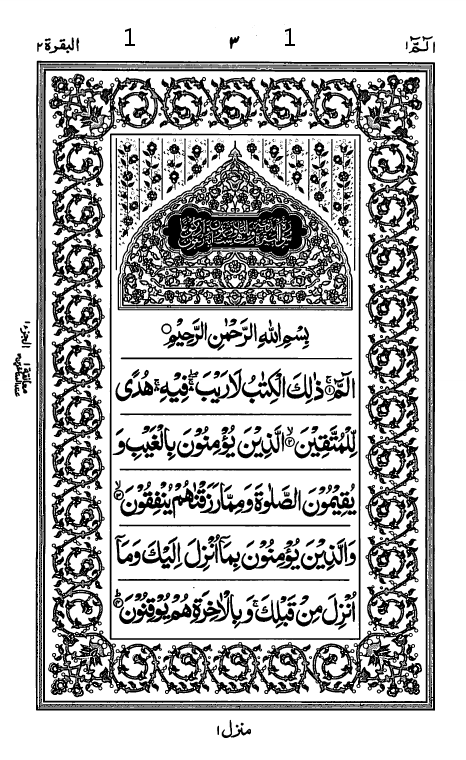 البقرة ٢ 1 ٣ 1 الٓمّٓ ١
بِسْمِ اللّٰهِ الرَّحْمٰنِ الرَّحِیْمِ
الٓمّٓ ۚ﴿۱﴾ ذٰلِكَ الْكِتٰبُ لَا رَیْبَ ۛۖ فِیْهِ ۛۚ هُدًی
لِّلْمُتَّقِیْنَ ۙ﴿۲﴾ الَّذِیْنَ یُؤْمِنُوْنَ بِالْغَیْبِ وَ
یُقِیْمُوْنَ الصَّلٰوةَ وَ مِمَّا رَزَقْنٰهُمْ یُنْفِقُوْنَ ۙ﴿۳﴾
وَ الَّذِیْنَ یُؤْمِنُوْنَ بِمَاۤ اُنْزِلَ اِلَیْكَ وَ مَاۤ
اُنْزِلَ مِنْ قَبْلِكَ ۚ وَ بِالْاٰخِرَةِ هُمْ یُوْقِنُوْنَ ؕ﴿۴﴾
منزل ١